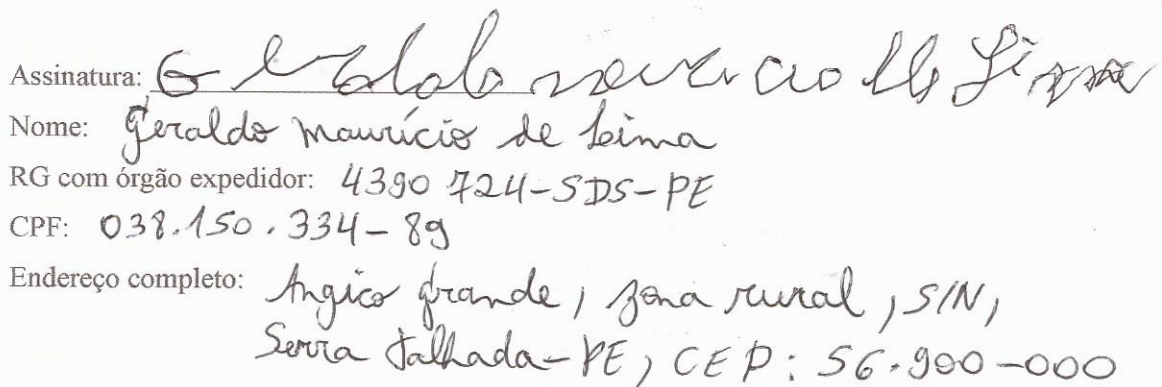 Assinatura: Geraldo mauricio de Lima
Nome: Geraldo Maurício de Lima
RG com órgão expedidor: 4390724-SDS-PE
CPF: 038.150.334-89
Endereço completo: Angico grande, zona rural, S/N,
Serra Talhada-PE, CEP: 56.900-000